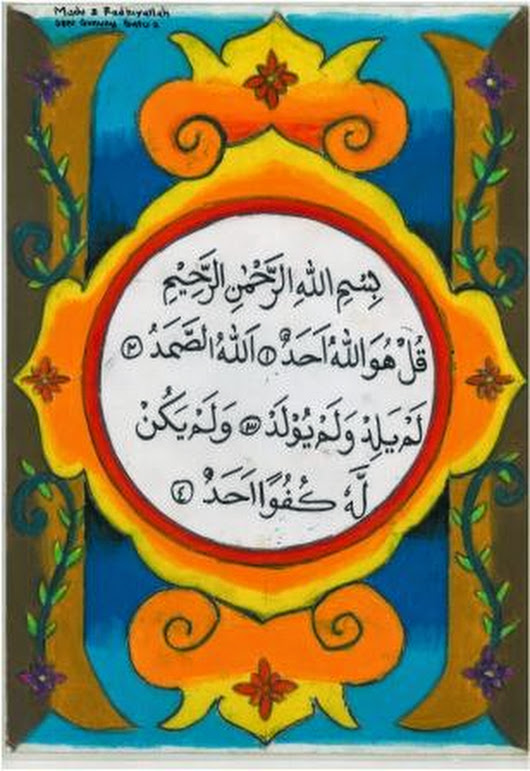 بِسْمِ اللهِ الرَّحْمٰنِ الرَّحِيْمِ
قُلْ هُوَ اللهُ اَحَدٌ ۝١ اَللهُ الصَّمَدُ ۝٢
لَمْ يَلِدْ وَلَمْ يُوْلَدْ ۝٣ وَلَمْ يَكُنْ
لَّهٗ كُفُوًا اَحَدٌ ۝٤